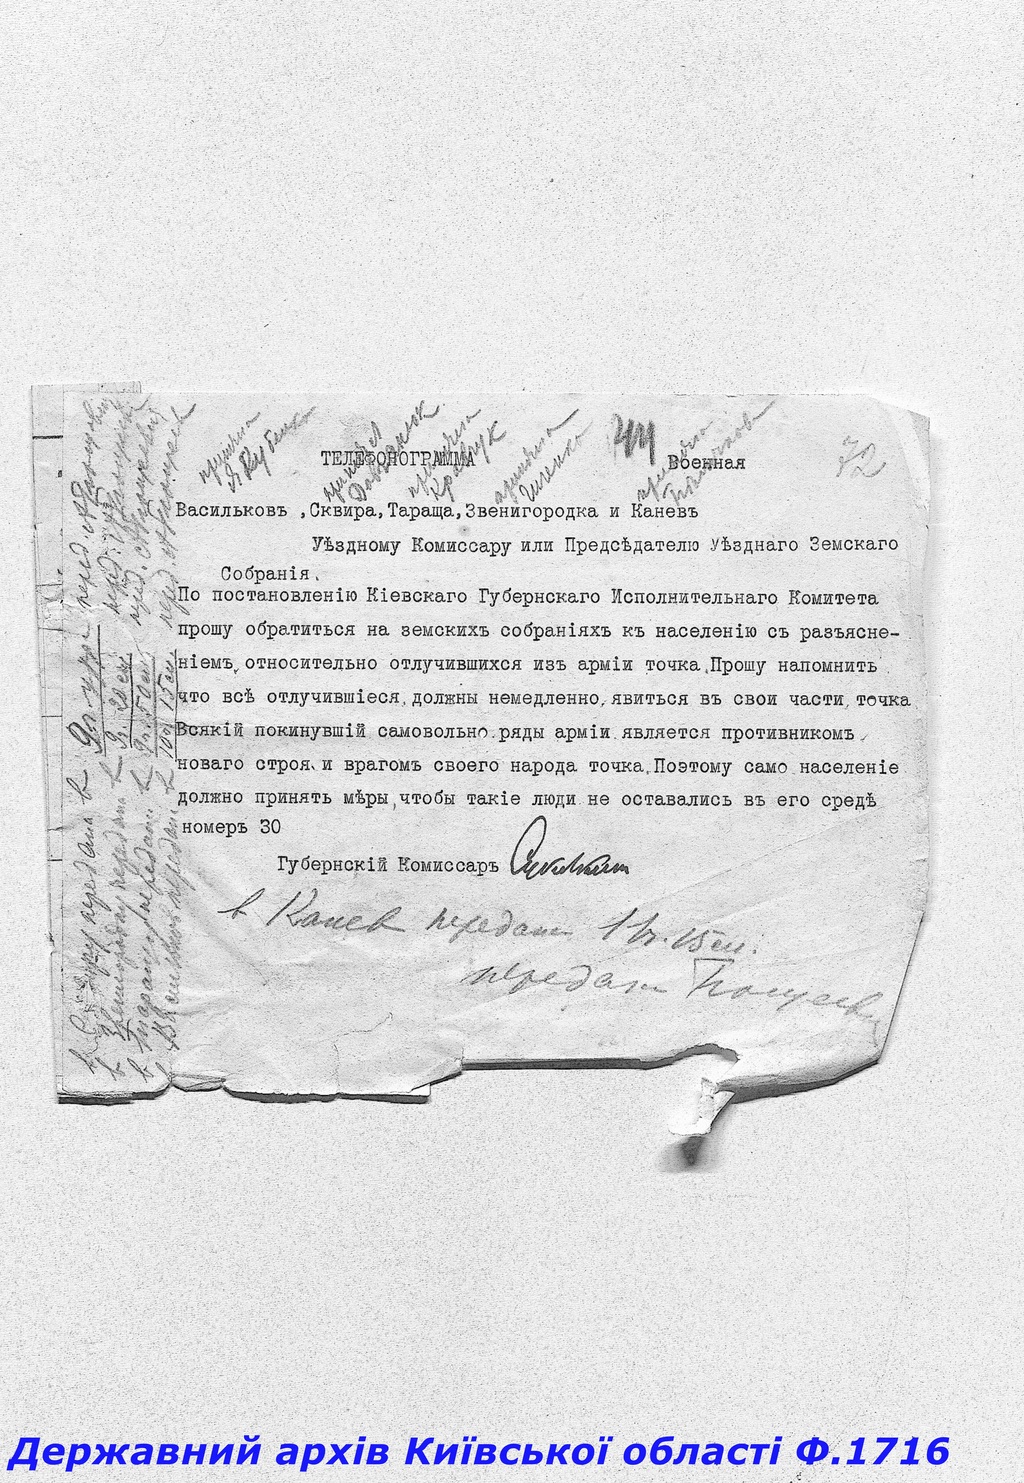 приняла
Якубенко
принял
приняла
Кравчук
приняла
Шенко
44
72
ТЕЛЕФОНОГРАММА Военная
Васильковъ ,Сквира,Тараща,Звенигородка и Каневъ
Уѣздному Комиссару или Предсѣдателю Уѣзднаго Земскаго
Собранія.
По постановленію Кіевскаго Губернскаго Исполнительнаго Комитета
прошу обратиться на земскихъ собраніяхъ къ населенію съ разъясне-
ніемъ, относительно отлучившихся изъ арміи точка.Прошу напомнить
что всѣ отлучившіеся, должны немедленно, явиться въ свои части, точка
Всякій покинувшій самовольно ряды арміи является противникомъ
новаго строя и врагомъ своего народа точка.Поэтому само населеніе
должно принять мѣры,чтобы такіе люди не оставались въ его средѣ
номеръ 30
Губернскій Комиссаръ
в Канев передан 1 ч. 15 м.
передан
в передана в 9 ч. утра перед.
в передан в 9 ч. 20 м перед.
в Таращу передан в 9 ч. 50 м перед.
в передан в 10 ч 15 м перед.
Державний архів Київської області Ф.1716